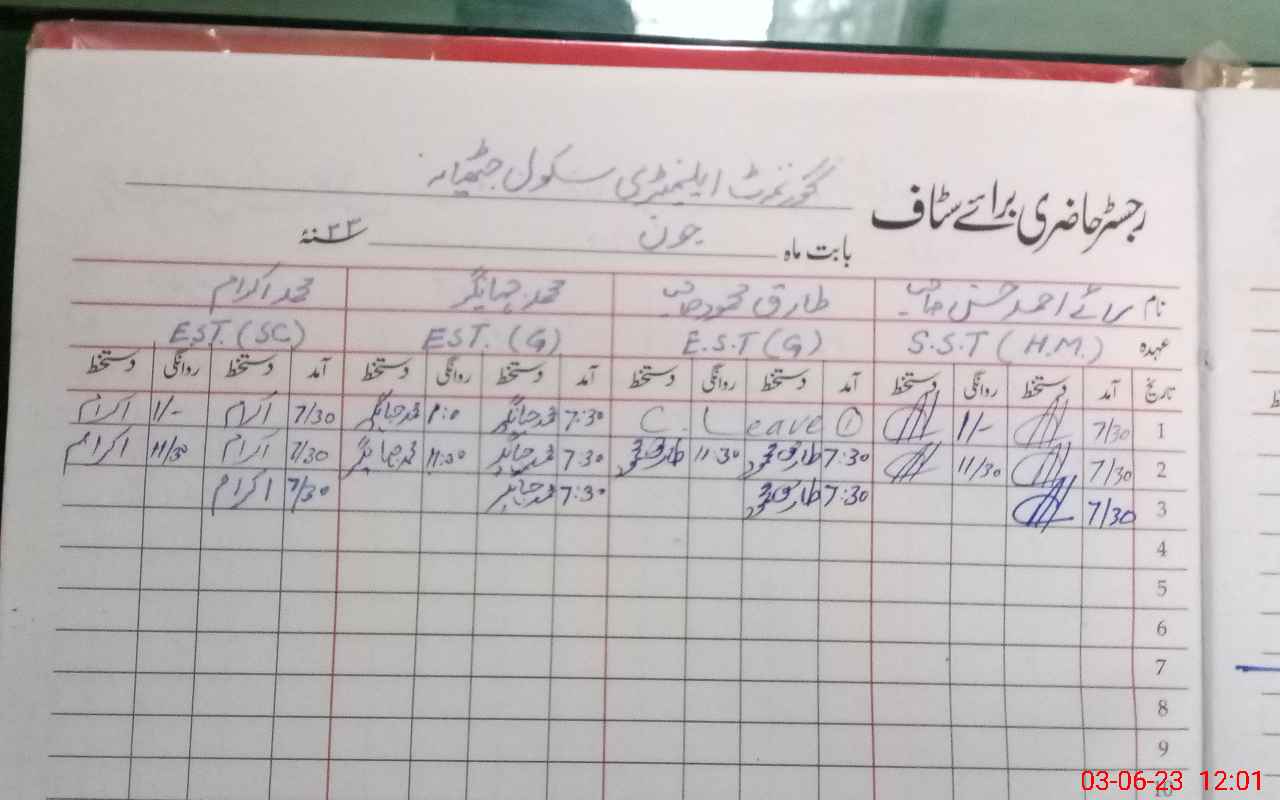 گورنمنٹ ایلیمنٹری سکول جٹھیانہ
رجسٹر حاضری برائے سٹاف
بابت ماہ جون سنہ ۲۳
نام رائے احمد حسن صاحب طارق محمود صاحب محمد جہانگیر محمد اکرام
عہدہ S.S.T (H.M.) E.S.T (G) EST. (G) E.ST. (SC)
تاریخ آمد دستخط روانگی دستخط آمد دستخط روانگی دستخط آمد دستخط روانگی دستخط آمد دستخط روانگی دستخط
1 7/30 1/- C. Leave ① 7:30 محمد جہانگیر 1:0 محمد جہانگیر 7/30 اکرام 1/- اکرام
2 7/30 11/30 7:30 طارق محمود 11:30 طارق محمود 7:30 محمد جہانگیر 11:30 محمد جہانگیر 7/30 اکرام 11/30 اکرام
3 7/30 7:30 طارق محمود 7:30 محمد جہانگیر 7/30 اکرام
4
5
6
7
8
9
10
03-06-23 12:01